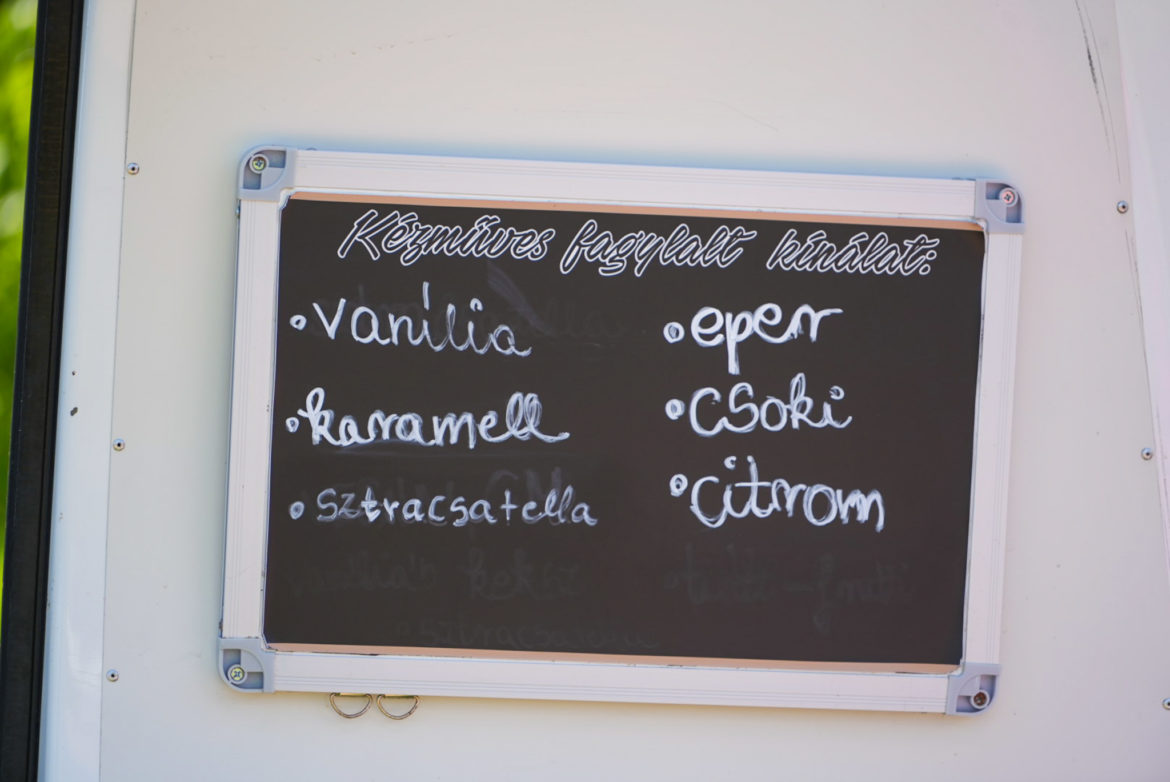 Kézműves fagylalt kínálat:
• vanília
• karamell
• sztracsatella
• eper
• csoki
• citrom